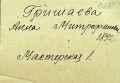 Гришаева
Анна Митрофановна
1892
Мастерская 1